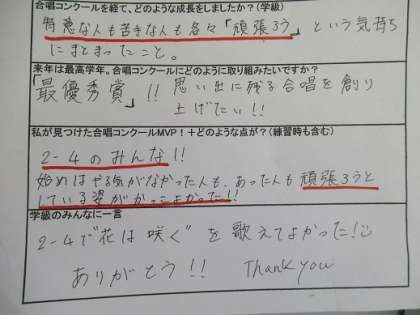 合唱コンクールを経て、どのような成長をしましたか？（学級）
得意な人も苦手な人も各々「頑張ろう」という気持ち
にまとまったこと。
来年は最高学年。合唱コンクールにどのように取り組みたいですか？
「最優秀賞」!! 思い出に残る合唱を創り
上げたい!!
私が見つけた合唱コンクールMVP！＋どのような点が？（練習時も含む）
2-4のみんな!!
始めはやる気がなかった人も、あった人も頑張ろうと
している姿がかっこよかった!!
学級のみんなに一言
2-4で"花は咲く"を歌えてよかった!☺
ありがとう!! Thank you